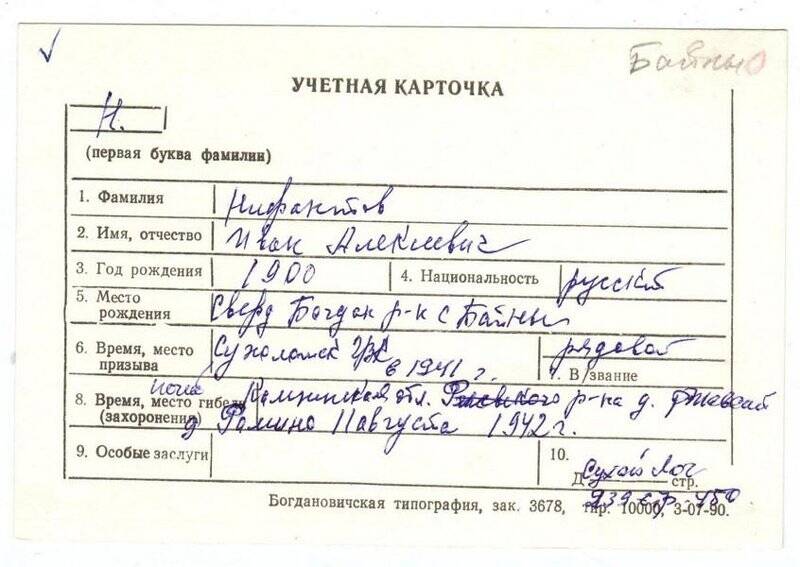 Байны
УЧЕТНАЯ КАРТОЧКА
Н.
(первая буква фамилии)
1. Фамилия Нифантов
2. Имя, отчество Иван Алексеевич
3. Год рождения 1900 4. Национальность русский
5. Место рождения Сверд Богдан р-н с Байны
6. Время, место призыва Сухоложск РВК в 1941 г.
рядовой
7. В/звание
8. Время, место гибели (захоронения) Калининская обл. р-на д.
д Фомино 11 августа 1942 г.
9. Особые заслуги
10.
Д Сухой Лог стр.
939 стр. 450
Богдановичская типография, зак. 3678, тир. 10000, 3-07-90.